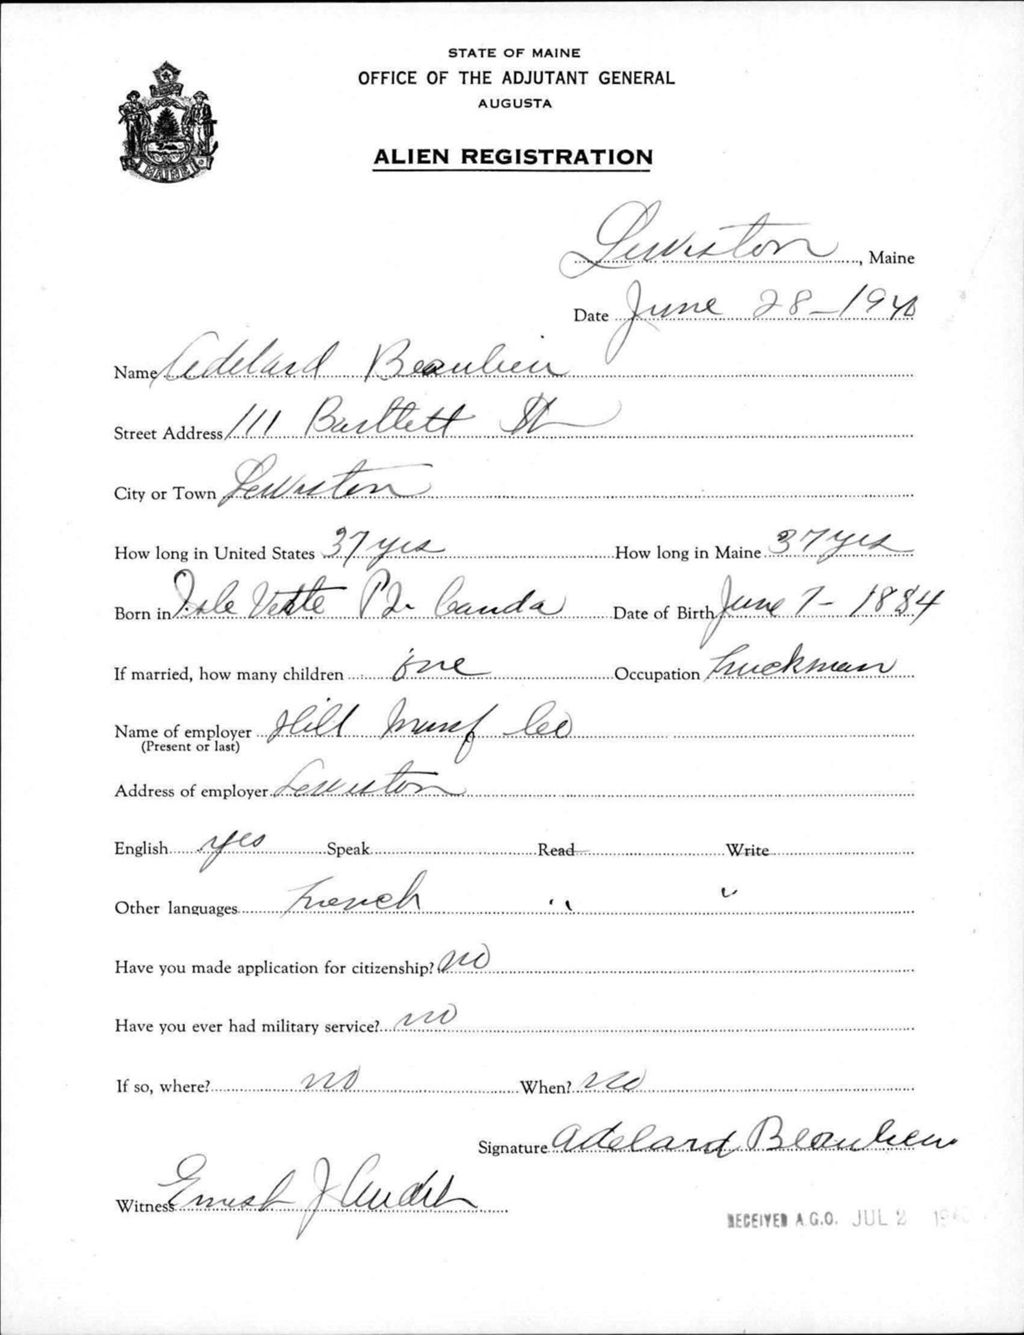 STATE OF MAINE
OFFICE OF THE ADJUTANT GENERAL
AUGUSTA
ALIEN REGISTRATION
MAINE
Lewiston, Maine
Date June 28-1940
Name Adelard Beaulieu
Street Address 111 Bartlett St
City or Town Lewiston
How long in United States 37 yrs How long in Maine 37 yrs
Born in Isle Vertte P2. Canda Date of Birth June 7- 1884
If married, how many children one Occupation Truckman
Name of employer Hill Manf Co
(Present or last)
Address of employer Lewiston
English yes Speak Read Write
Other languages French " "
Have you made application for citizenship? no
Have you ever had military service? no
If so, where? no When? no
Signature Adelard Beaulieu
Witness Ernest J Audet
RECEIVED A.G.O. JUL 2 1940